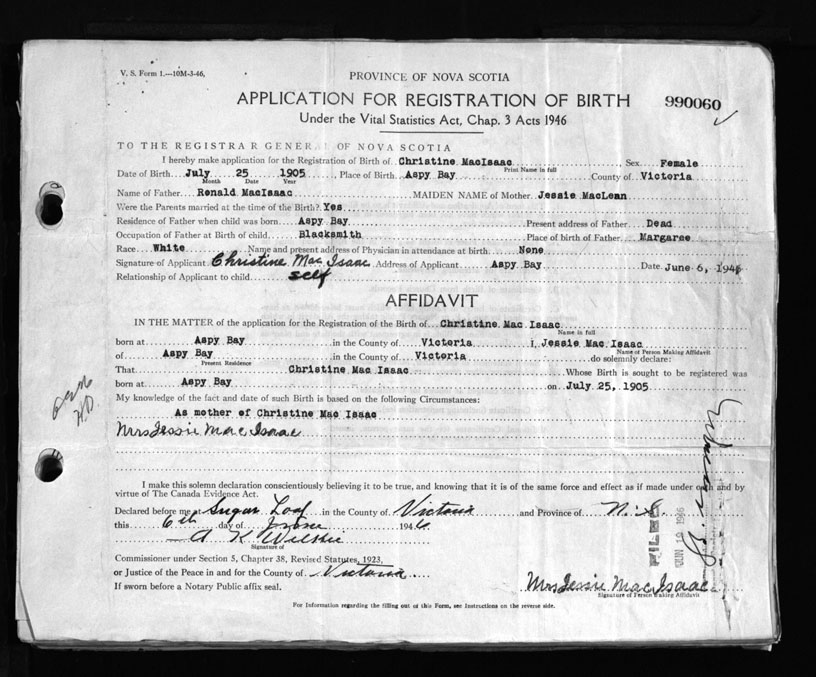 V. S. Form 1.—10M-3-46,
PROVINCE OF NOVA SCOTIA
APPLICATION FOR REGISTRATION OF BIRTH 990060
Under the Vital Statistics Act, Chap. 3 Acts 1946
TO THE REGISTRAR GENERAL OF NOVA SCOTIA
I hereby make application for the Registration of Birth of Christine MacIsaac Sex Female
Print Name in full
Date of Birth July 25 1905 Place of Birth Aspy Bay County of Victoria
Month Date Year
Name of Father Ronald MacIsaac MAIDEN NAME of Mother Jessie MacLean
Were the Parents married at the time of the Birth? Yes
Residence of Father when child was born Aspy Bay Present address of Father Dead
Occupation of Father at Birth of child Blacksmith Place of birth of Father Margaree
Race White Name and present address of Physician in attendance at birth None
Signature of Applicant Christine Mac Isaac Address of Applicant Aspy Bay Date June 6, 1946
Relationship of Applicant to child self
AFFIDAVIT
IN THE MATTER of the application for the Registration of the Birth of Christine Mac Isaac
Name in full
born at Aspy Bay in the County of Victoria I, Jessie Mac Isaac
Name of Person Making Affidavit
of Aspy Bay in the County of Victoria do solemnly declare:
Present Residence
That Christine Mac Isaac Whose Birth is sought to be registered was
born at Aspy Bay on July 25, 1905
My knowledge of the fact and date of such Birth is based on the following Circumstances:
As mother of Christine Mac Isaac
Mrs Jessie Mac Isaac
I make this solemn declaration conscientiously believing it to be true, and knowing that it is of the same force and effect as if made under oath and by
virtue of The Canada Evidence Act.
Declared before me at Sugar Loaf in the County of Victoria and Province of N. S.
this 6th day of June 1946
A K Wilkie
Signature of
Commissioner under Section 5, Chapter 38, Revised Statutes, 1923,
or Justice of the Peace in and for the County of Victoria
If sworn before a Notary Public affix seal.
Mrs Jessie Mac Isaac
Signature of Person Making Affidavit
For Information regarding the filling out of this Form, see Instructions on the reverse side.
FILED
JUN 19 1946